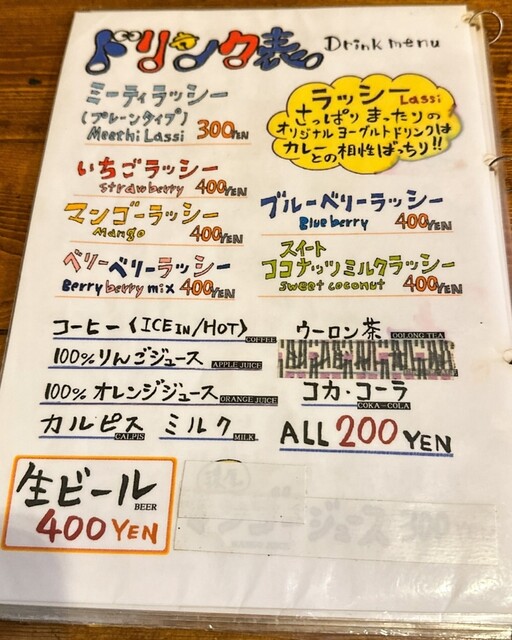 ドリンク表 Drink menu
ミーティラッシー
(プレーンタイプ)
Meethi Lassi 300YEN
ラッシー Lassi
さっぱり まったりの
オリジナル ヨーグルトドリンクは
カレーとの相性ばっちり!!
いちごラッシー
Strawberry 400YEN
ブルーベリーラッシー
Blueberry 400YEN
マンゴーラッシー
Mango 400YEN
スイート
ココナッツミルクラッシー
Sweet coconut 400YEN
ベリーベリーラッシー
Berry berry mix 400YEN
コーヒー〈ICE IN/HOT〉 COFFEE
ウーロン茶 OOLONG TEA
100%りんごジュース APPLE JUICE
100%オレンジジュース ORANGE JUICE
コカ・コーラ
COKA-COLA
カルピス CALPIS ミルク MILK
ALL 200 YEN
生ビール
BEER
400 YEN
ジュース 300